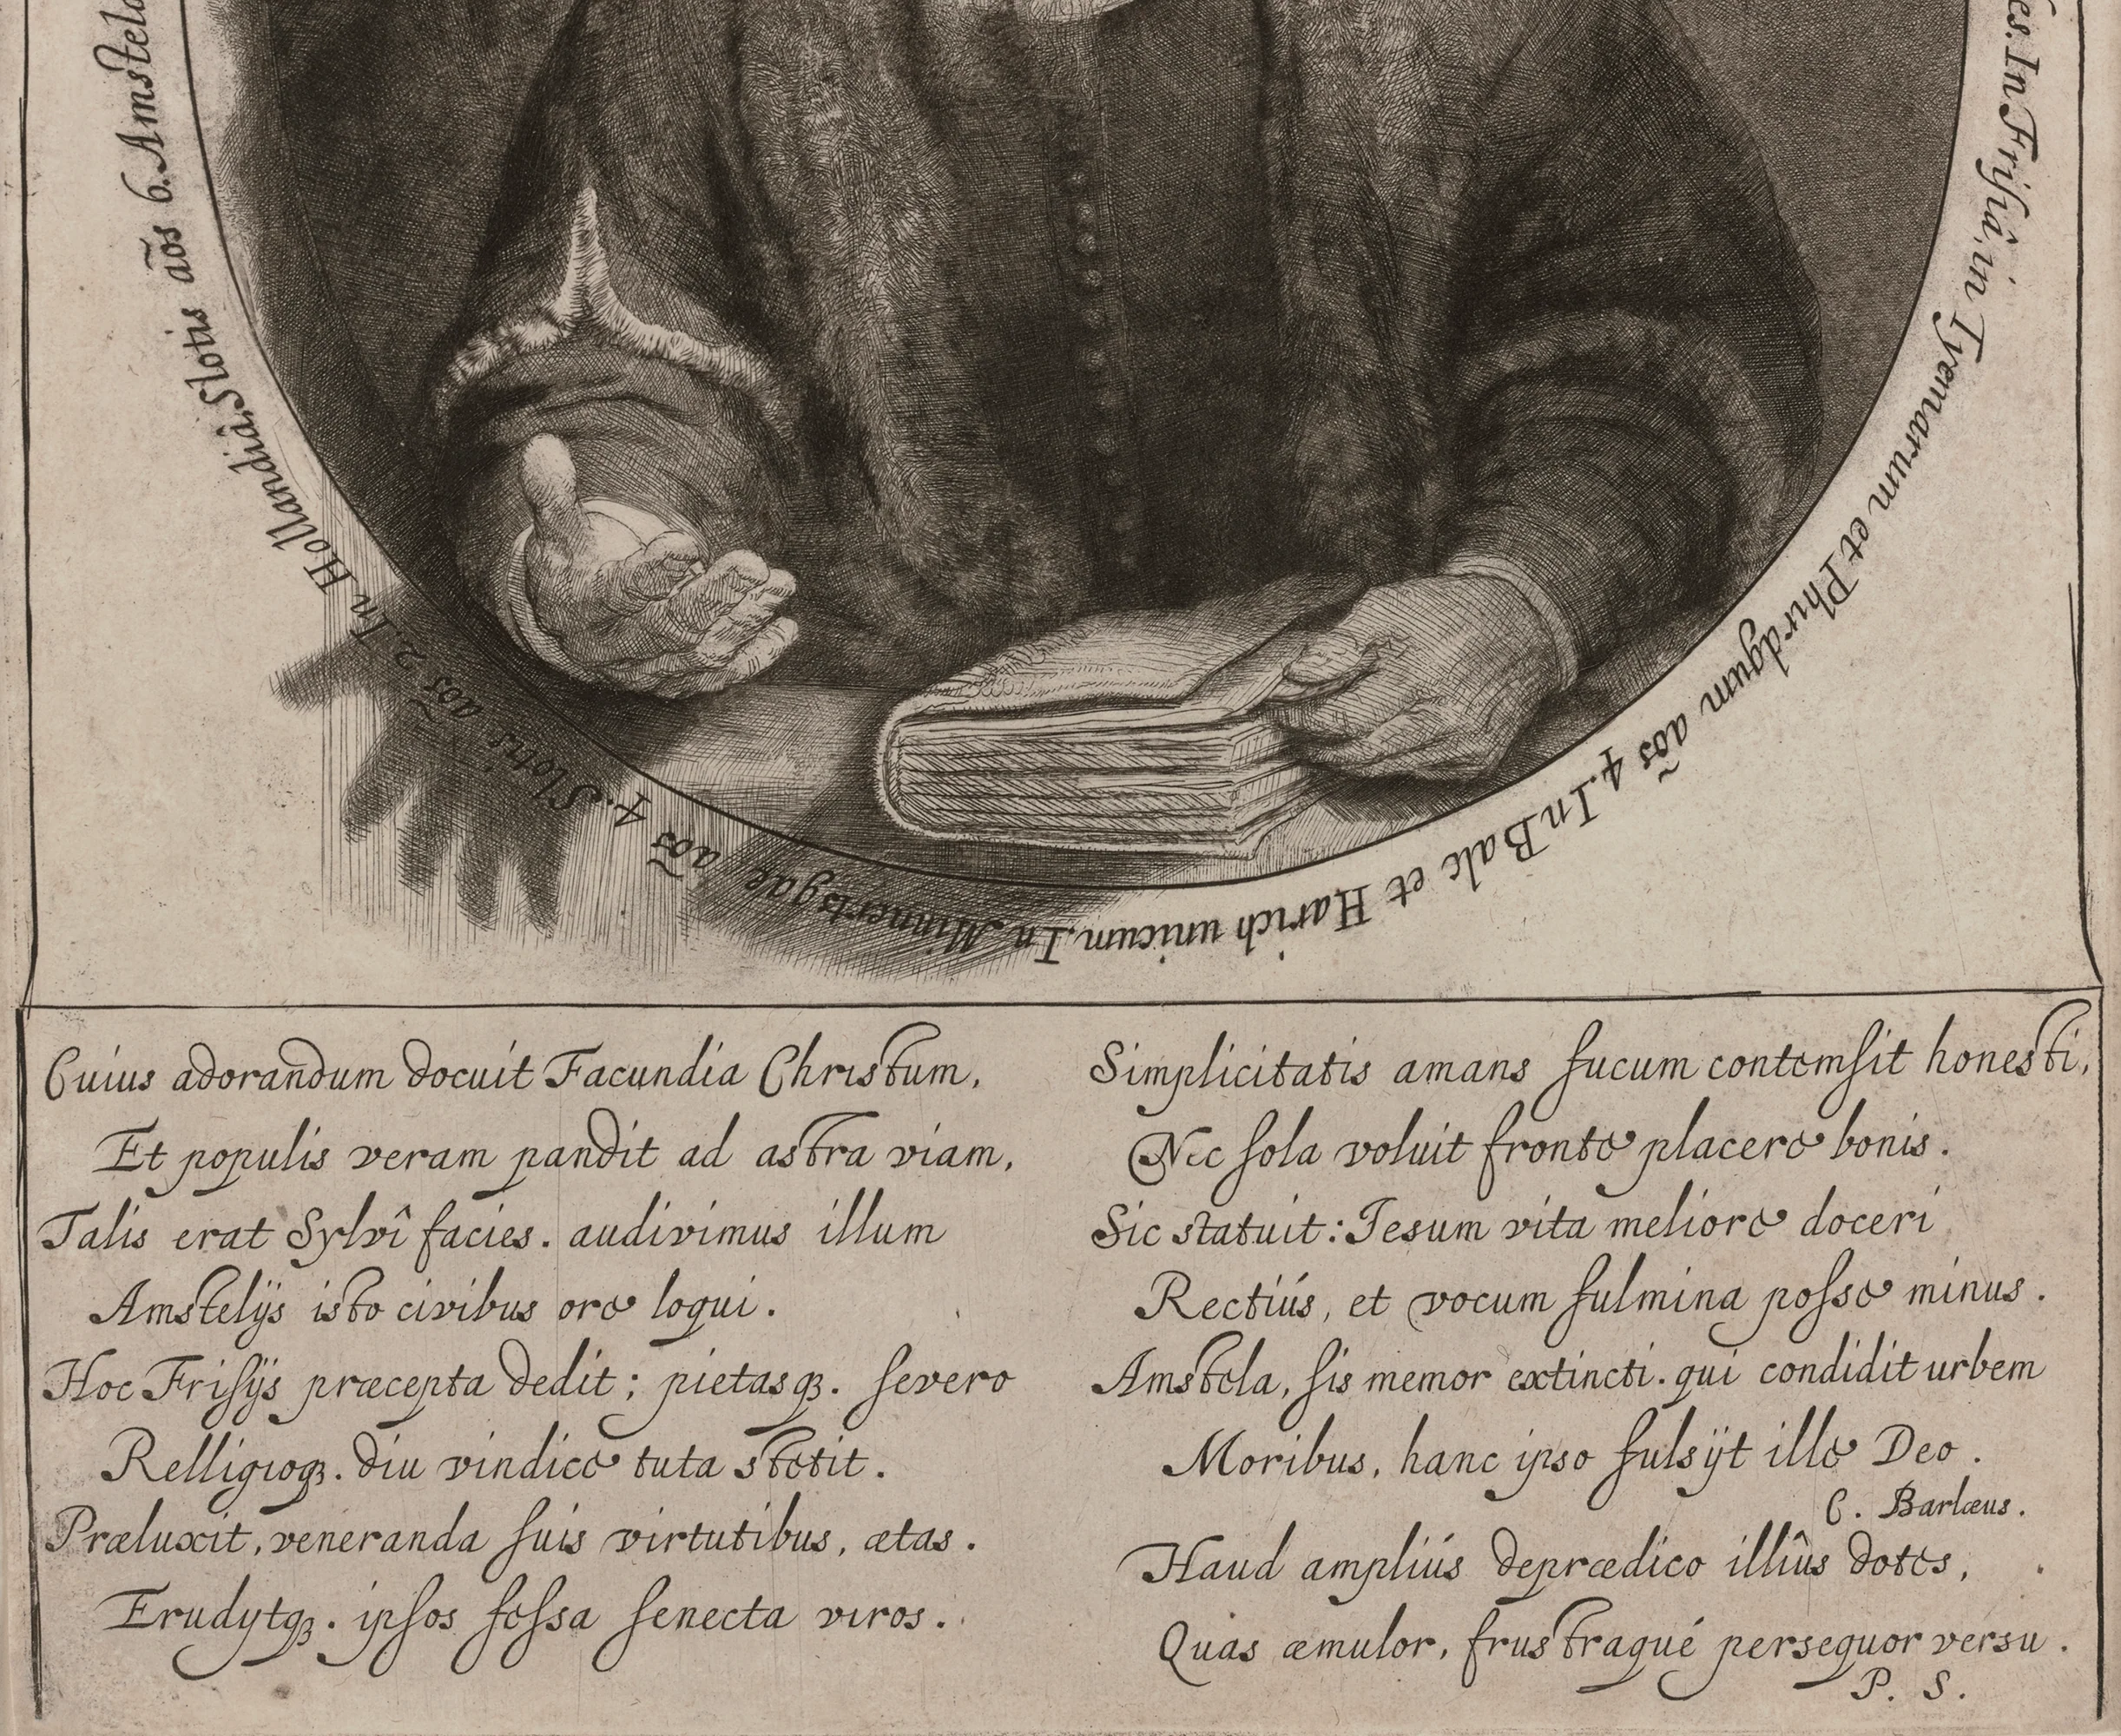 es. In Frisiâ, in Tyemarum et Phirdgum aõs 4. In Balc et Harich unicum. In Minnertsgae aõs 4. Slotis aõs 2. In Hollandiâ, Slotis aõs 6. Amstela
Cuius adorandum docuit Facundia Christum,
Et populis veram pandit ad astra viam,
Talis erat Sylvî facies. audivimus illum
Amstelijs isto civibus ore loqui.
Hoc Frisijs præcepta dedit; pietasqꝫ. severo
Relligioqꝫ. diu vindice tuta stetit.
Præluxit, veneranda suis virtutibus, ætas.
Erudytqꝫ. ipsos fessa senecta viros.
Simplicitatis amans fucum contemsit honesti,
Nec sola voluit fronte placere bonis.
Sic statuit: Iesum vita meliore doceri
Rectiús, et vocum fulmina posse minus.
Amstela, sis memor extincti. qui condidit urbem
Moribus, hanc ipso fulsijt ille Deo.
C. Barlæus.
Haud ampliús deprædico illîus dotes,
Quas æmulor, frustraqué persequor versu.
P. S.